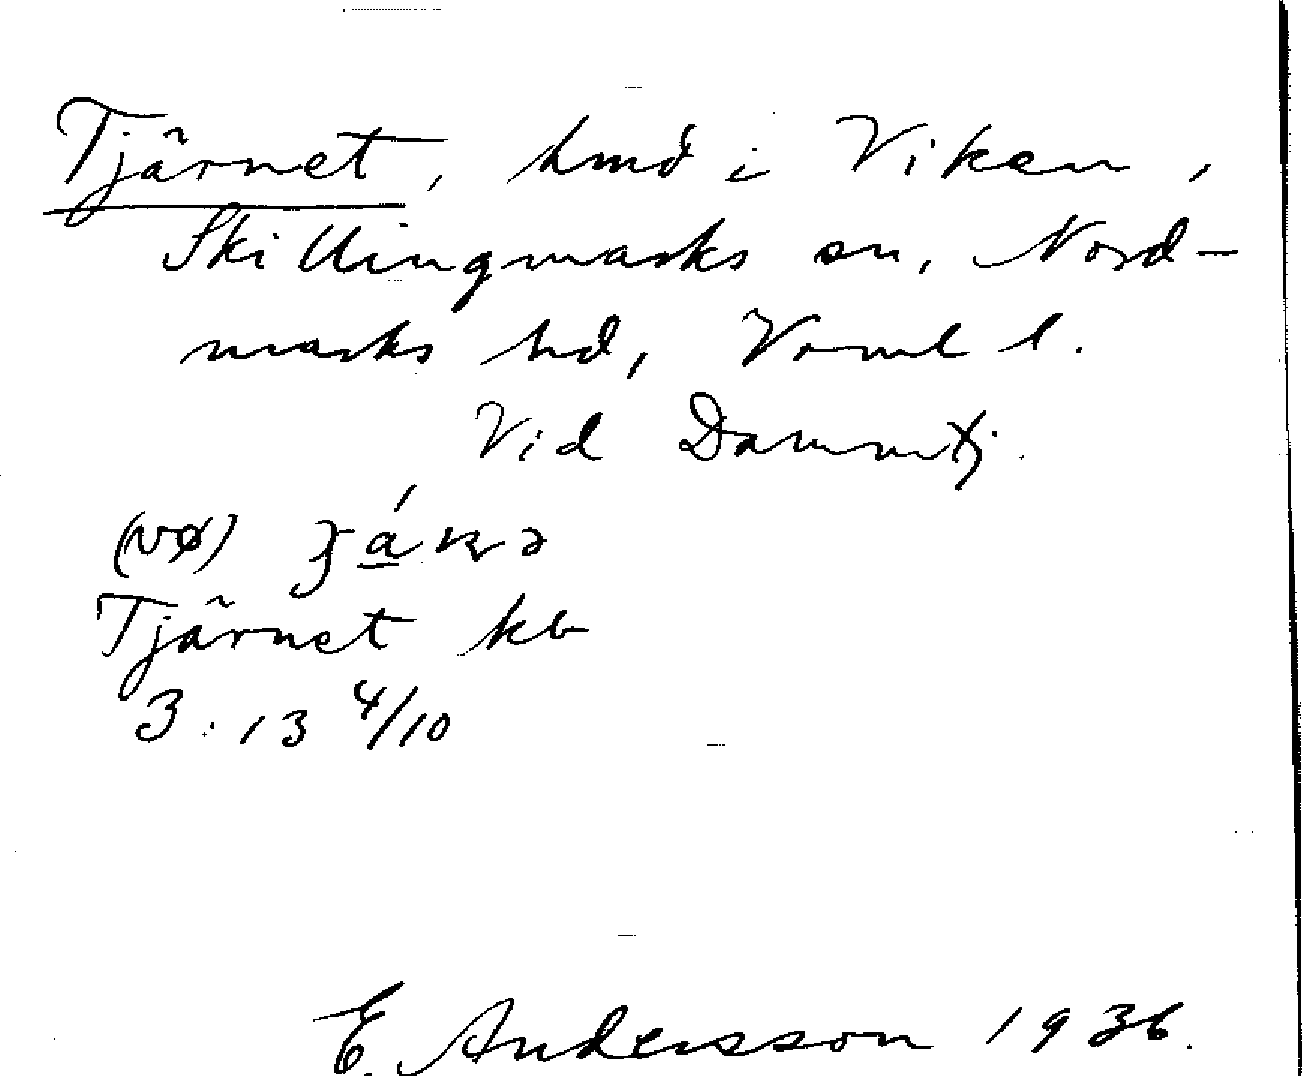 Tjärnet, hmd i Viken,
Skillingmarks sn, Nord-
marks hd, Vrml l.
Vid Dammtj.
(vø)
Tjärnet kb
3:13 4/10
E. Andersson 1936.